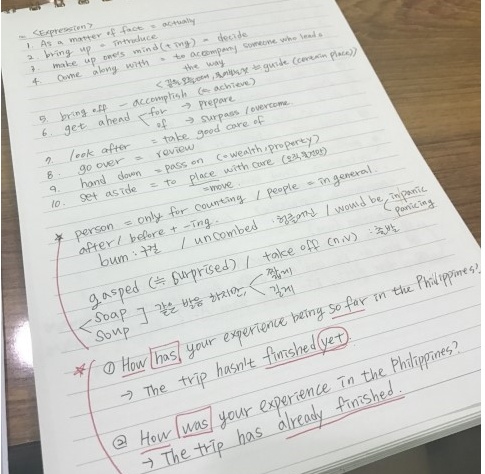 <Expression>
1. As a matter of fact = actually
2. bring up = introduce
3. make up one's mind (+ing) = decide
4. come along with = to accompany someone who leads
the way
to guide (certain place)>
5. bring off - accomplish (= achieve)
6. get ahead < for → prepare
of → surpass / overcome
7. look after = take good care of
8. go over = review
9. hand down = pass on (wealth, property)
10. set aside = to place with care
=move.
* person = only for counting / people = in general.
after / before + -ing.
bum : 구걸 / uncombed : 헝클어진 / would be < in panic
panicing
gasped (≒ surprised) / take off (n.v) : 출발
< soap ] 같은 발음 하지만, < 짧게
soup 길게
* ① How has your experience being so far in the Philippines?
→ The trip hasn't finished yet
② How was your experience in the Philippines?
→ The trip has already finished.